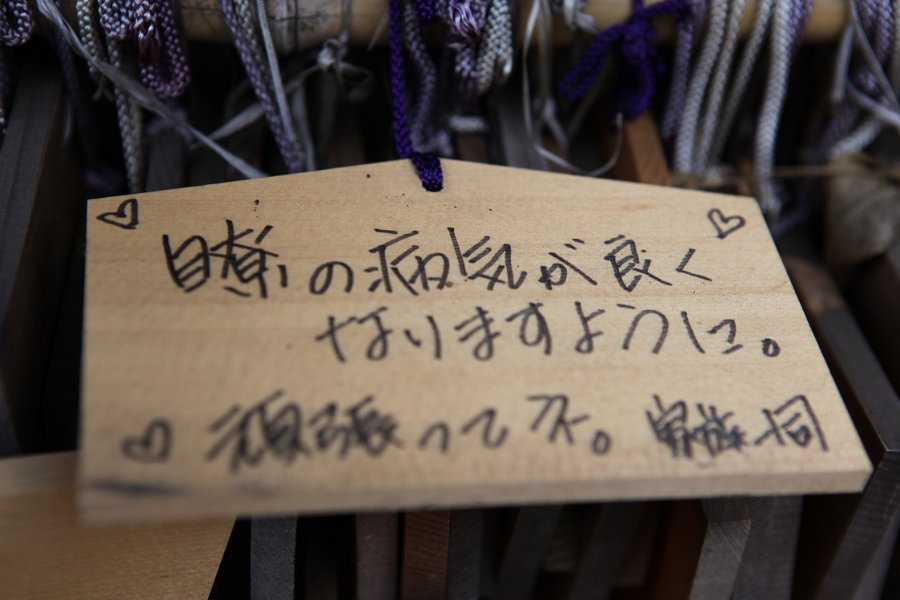 瞭の病気が良く
なりますように。
頑張ってネ。 家族一同